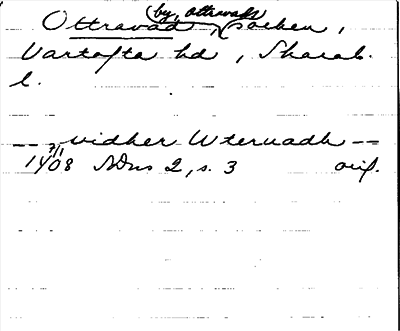 Ottravad (by, Ottravads socken,
Vartofta hd, Skarab.
l.
-- vidher Vternadh --
7/1
1408 SDns 2, s. 3 orig.